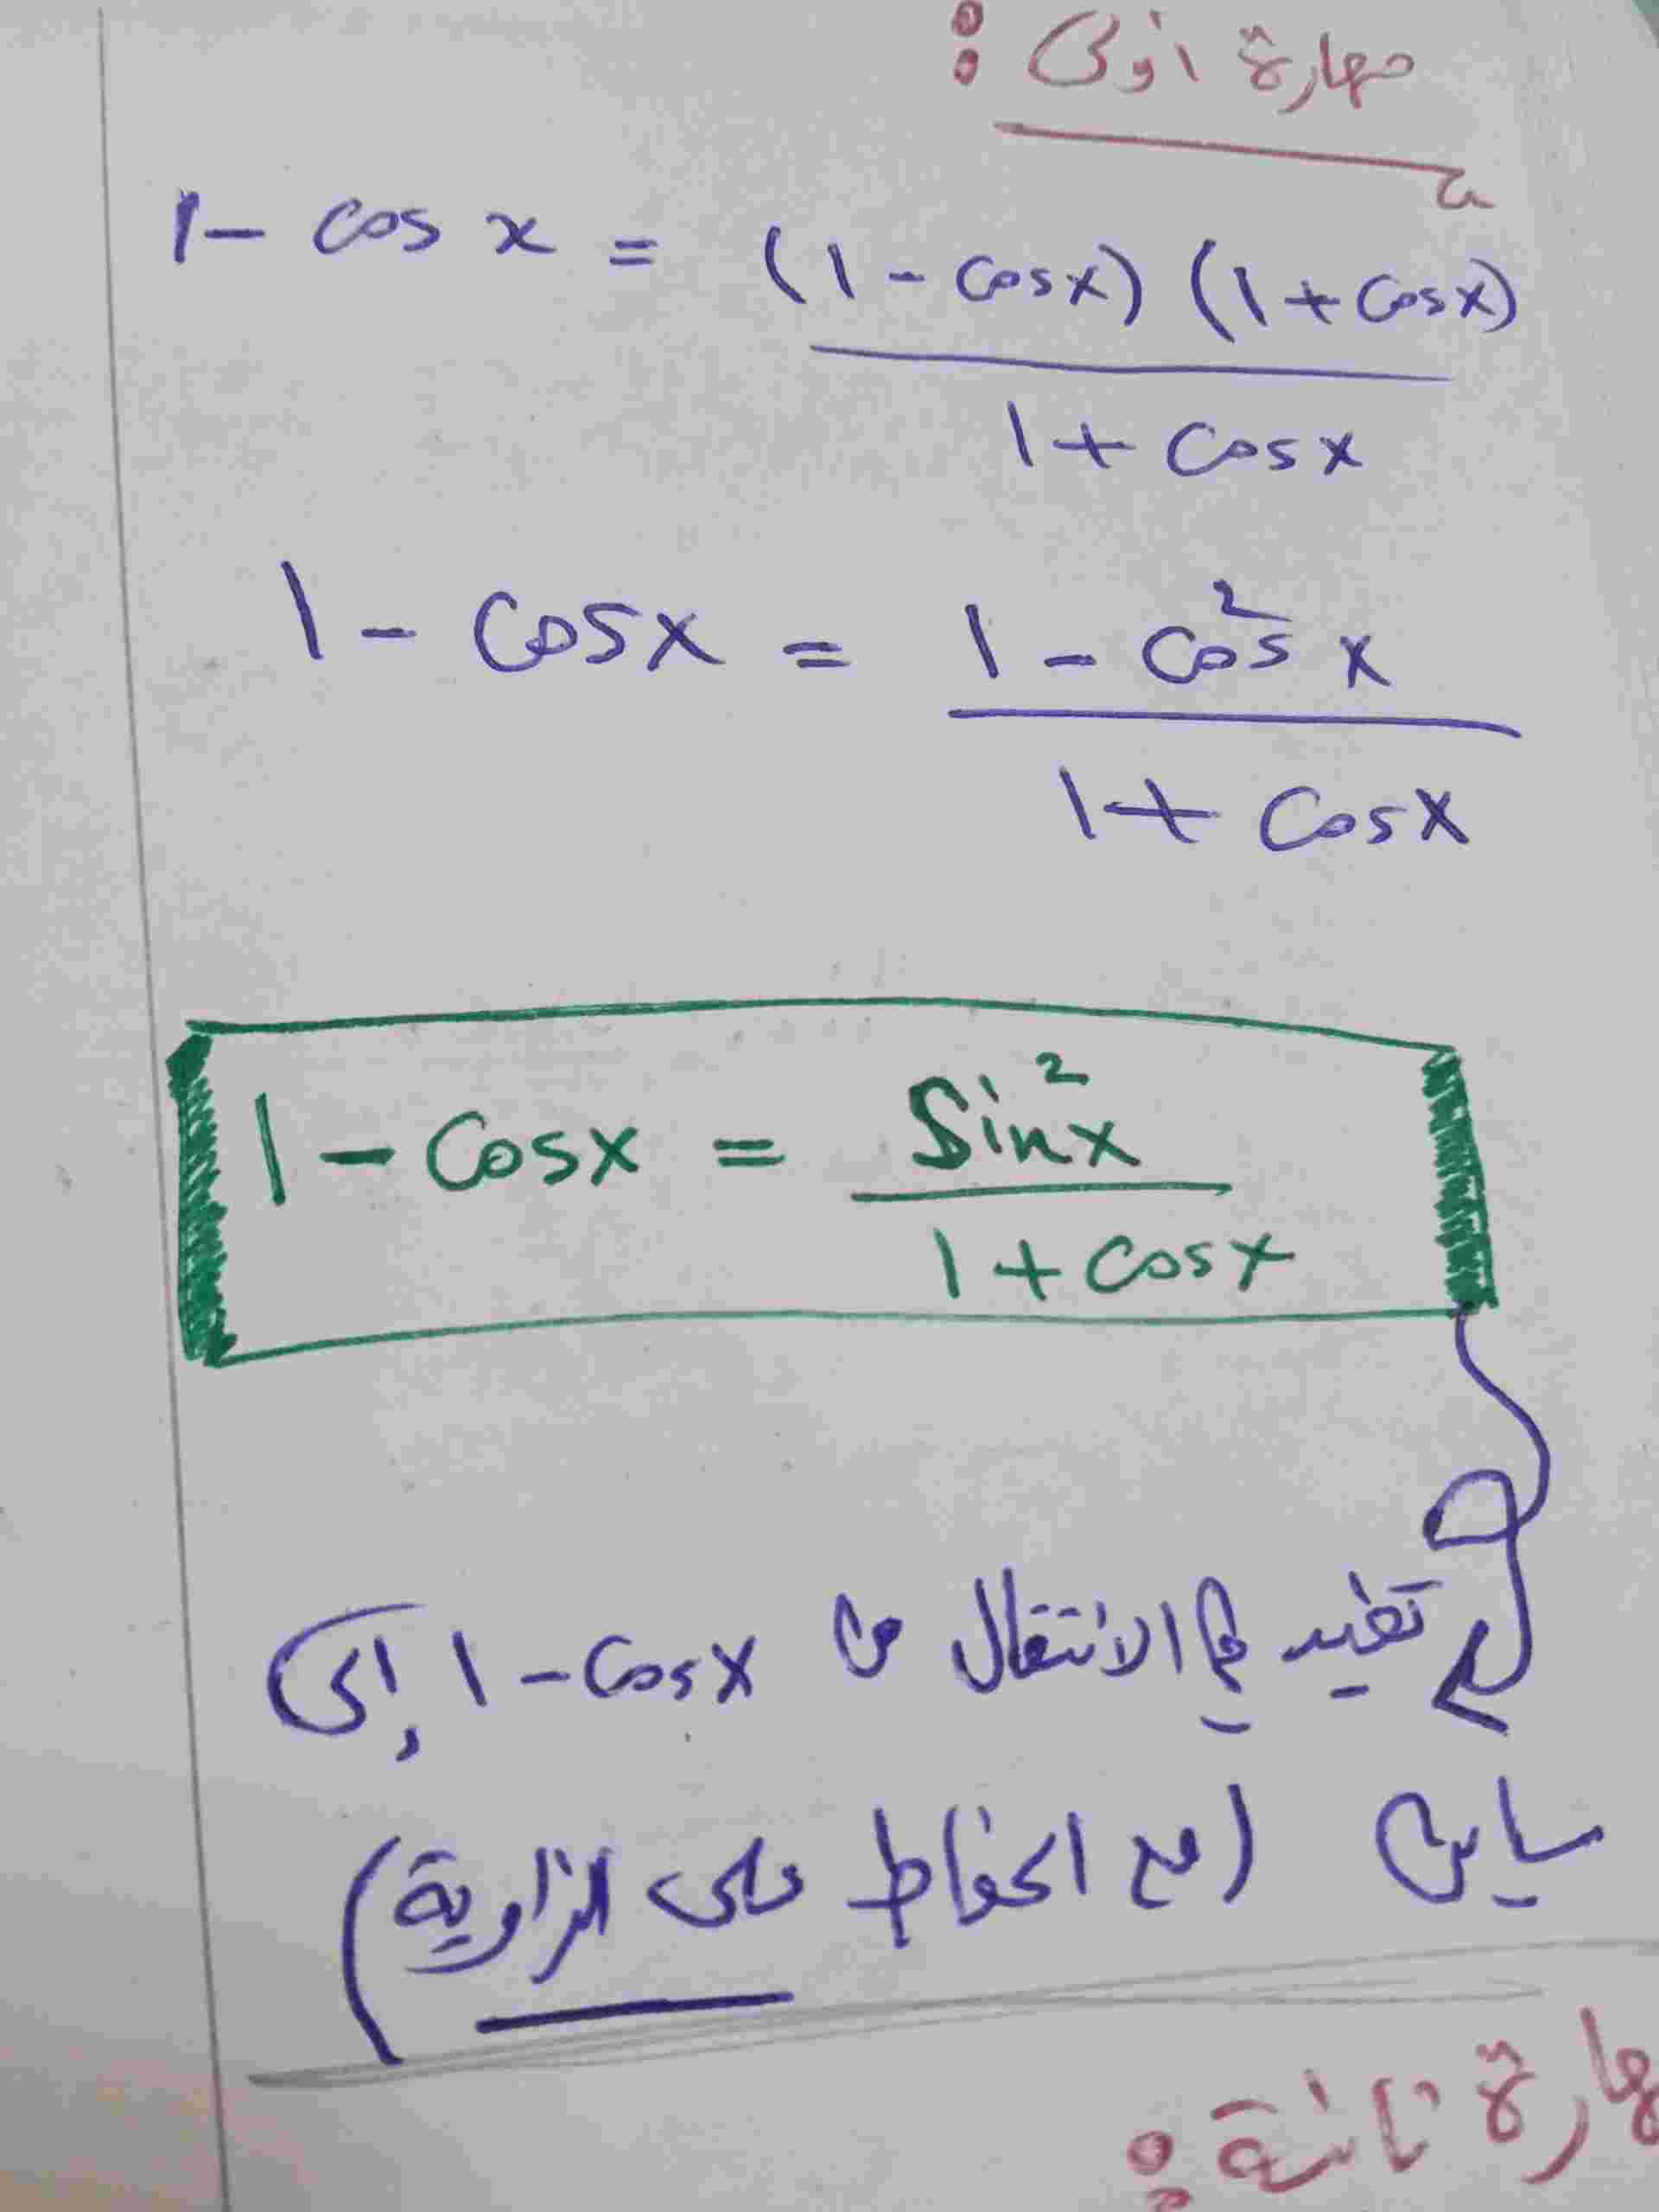 مهارة أولى :
1 - cos x = (1 - cosx) (1 + cosx) / 1 + cosx
1 - cosx = 1 - cos²x / 1 + cosx
1 - cosx = sin²x / 1 + cosx
تفيد في الانتقال من 1 - cosx إلى
ساين (مع الحفاظ على الزاوية)
مهارة ثانية :